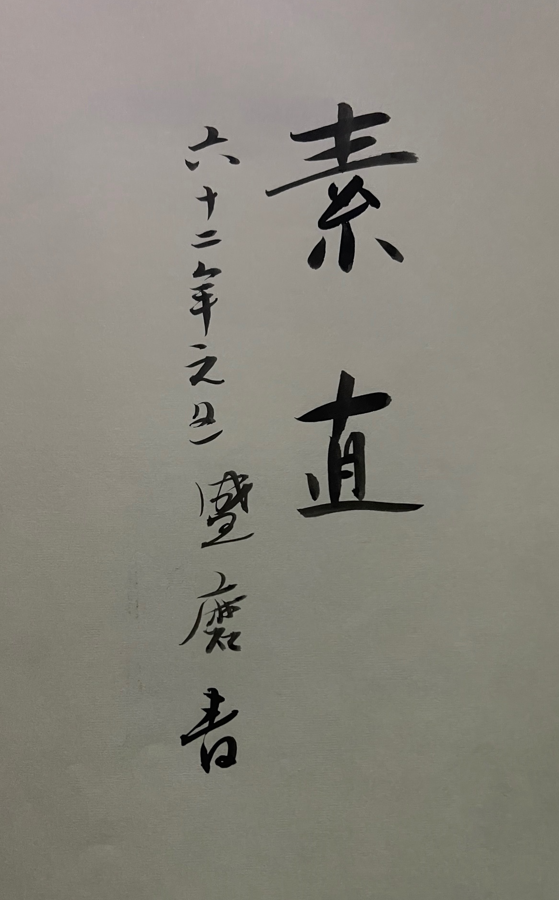 素直
六十二年元旦 豊磨書